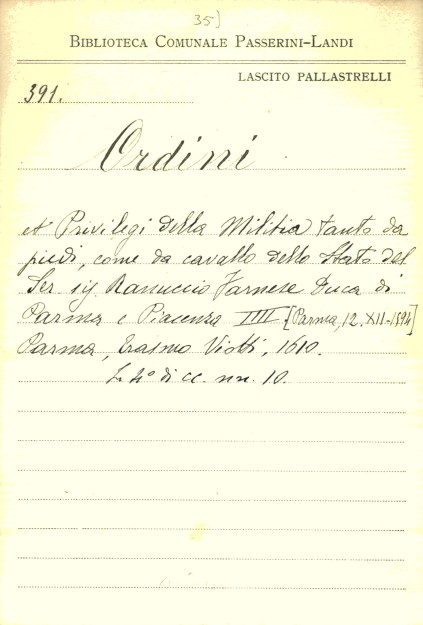 35)
BIBLIOTECA COMUNALE PASSERINI-LANDI
LASCITO PALLASTRELLI
391.
Ordini
et Privilegi della Militia tanto da
piedi, come da cavallo dello Stato del
Ser. sig. Ranuccio Farnese Duca di
Parma e Piacenza IIII [Parma, 12. XII-1594]
Parma, Erasmo Viotti, 1610.
4° di cc. nn. 10.